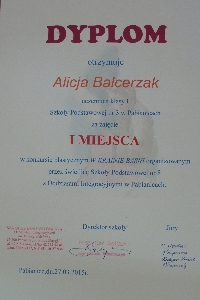 DYPLOM
otrzymuje
Alicja Balcerzak
uczennica klasy I
Szkoły Podstawowej nr 3 w Pabianicach
za zajęcie
I MIEJSCA
w konkursie plastycznym W KRAINIE organizowanym
przez świetlicę Szkoły Podstawowej nr 8
z Oddziałami Integracyjnymi w Pabianicach.
Dyrektor szkoły Jury
Pabianice, dn.27.03.2015r.